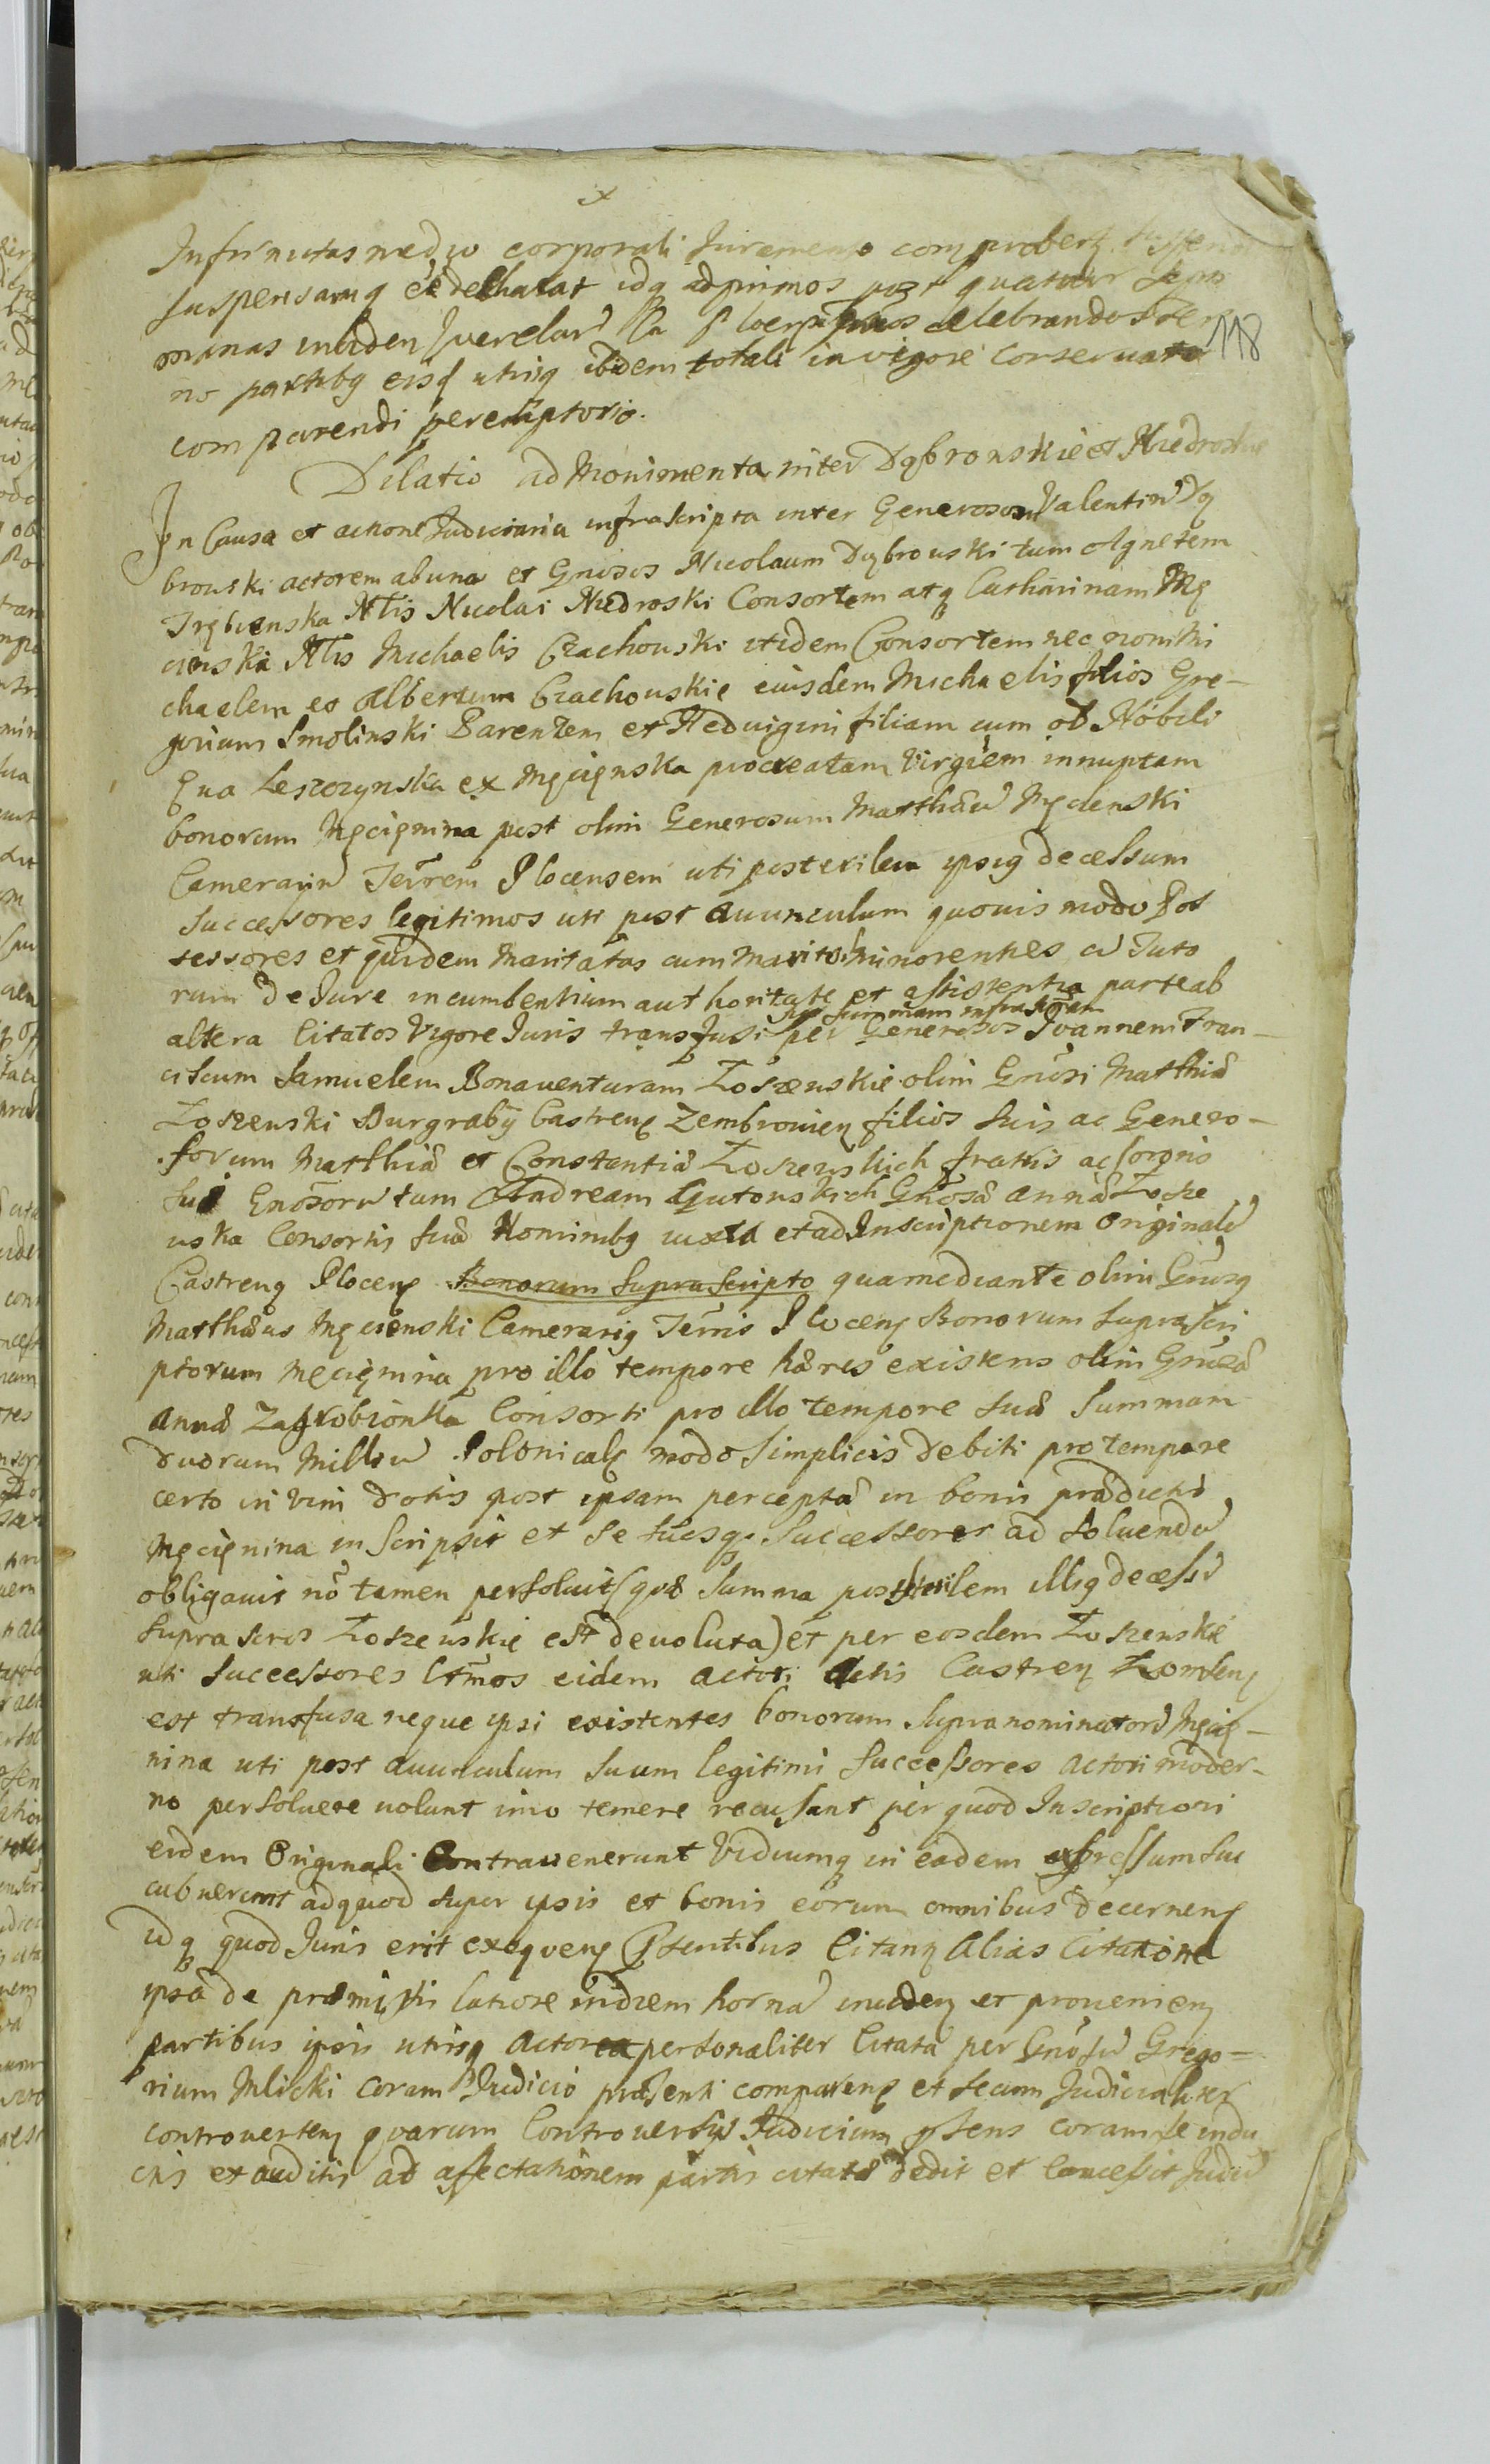 Infirmitas medio corporali Juramento comprobetz
suspensamq e͠ declarat idq ad primos post quatuor septi
manas inciden Querelar͠ Plocen celebrando Ter 118
no partibq eisd utrisq ibidem totali in vigore conservato
comparendi peremptorio.
Dilatio ad Monimenta inter Dąbrowskie et Niedroskie
In Causa et actione Judiciaria infrascripta inter Generosos Valentin͠ Dą
browski actorem ab una et Gn͠osos Nicolaum Dąbrowski tum Agnetem
Trębienska N͠lis Nicolai Niedroski Consortem atq Catharinam Mę
cienska N͠lis Michaelis Czachouski itidem Consortem nec non Mi
chaelem et Albertum Czachouskie eiusdem Michaelis filios Gre-
gorium Smolinski Parentem et Hedvigim filiam cum ob Nobili
Eva Leszczynska ex Męcienska procreatam Virg͠em innuptam
bonorum Męcięnina post olim Generosum Matthæu͠ Męcienski
Camerariu͠ Terrem Plocensem uti post sterilem ipsiq decessum
Successores legitimos uti post avunculum quovis modo Pos
sessores et quidem Maritatas cum Maritis Minorennes cu͠ Tuto
rum de Jure incumbentium authoritate et assistentia parte ab
sup summam infrascr͠tam
altera Citatos Vigore Juris transfusi per Generosos Joannem Fran-
ciscum Samuelem Bonaventuram Zoszewskie olim Gn͠osi Matthiæ
Zoszenski Burgrabÿ Castrenq Zembrovienq filios suis ac Genero-
sorum Matthiæ et Constantiæ Zoszewskich fratris ac sororis
suæ Gn͠osoru͠ tum Andream Gutowskich Gn͠osæ Annæ Zosze
uska Consortis suæ Nominibq iuxta et ad Inscriptionem Originale͠
Castrenq Plocenq Bonorum suprascripto qua mediante olim Gn͠osq
Matthæus Męcienski Camerariq Terris Plocenq Bonorum suprascri
ptorum Męcięnina pro illo tempore hæres existens olim Gn͠osæ
Annæ Zagrobionka Consorti pro illo tempore suæ Summam
duorum Milliu͠ Polonicalq modo simplicis debiti pro tempore
certo in vim dotis post ipsam percepta͠ in bonis prædictis
Męcięnina inscripsit et se suosq successores ad soluendu͠
obligavit no͠ tamen persoluit (quæ summa post sterilem illiq decessu͠
suprascros Zoszeuskie est devoluta) et per eosdem Zoszenskie
uti Successores ltimos eidem actori Actis Castrenq Zomsenq
est transfusa neque ipsi existentes bonorum supranominatoru͠ Męcię-
nina uti post avunculum suum legitimi Successores actori moder-
no persoluere uolunt imo temere recusant per quod Inscriptioni
eidem Originali Contravenerunt Vadiumq in eadem expressum suc
cubuerunt ad quod super ipsis et bonis eorum omnibus decernenq
idq quod Juris erit exequenq Pr͠sentibus Citanq Alias Citatione
ipsa de præmissis latiore in diem horna͠ incidenq et provenienq
partibus ipsis utrisq Actorea personaliter Citata per Gn͠osu͠ Grego=
rium Mlicki coram Judicio præsenti comparenq et secum Judicialiter
controvertenq quarum Controversÿs Judicium p͠sens coram se indu
ctis et auditis ad affectationem partis citatæ dedit et concessit Judi͠